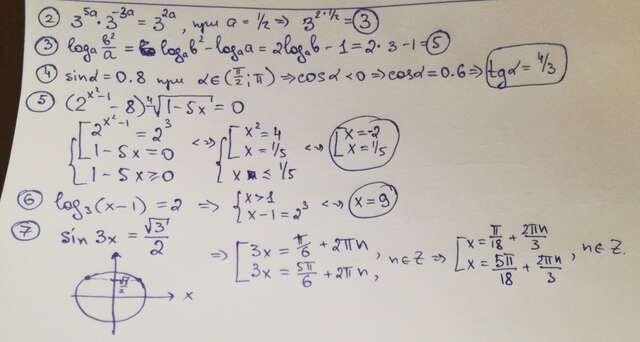 ② 3^{5a} · 3^{-3a} = 3^{2a}, при a = 1/2 => 3^{2·1/2} = 3
③ log_a b²/a = log_a b² - log_a a = 2log_a b - 1 = 2·3-1 = 5
④ sinα = 0.8 при α∈(π/2; π) => cosα < 0 => cosα = 0.6 => tgα = 4/3
⑤ (2^{x²-1} - 8) ⁴√(1-5x) = 0
{ [ 2^{x²-1} = 2³ <=> { [ x² = 4 <=> [ x = -2
1-5x = 0 x = 1/5 x = 1/5
1-5x ≥ 0 x ≤ 1/5
⑥ log_3 (x-1) = 2 => { x > 1 <=> x = 9
x-1 = 2³
⑦ sin 3x = √3/2 => [ 3x = π/6 + 2πn, n∈Z => [ x = π/18 + 2πn/3, n∈Z.
3x = 5π/6 + 2πn, x = 5π/18 + 2πn/3
√3/2
x